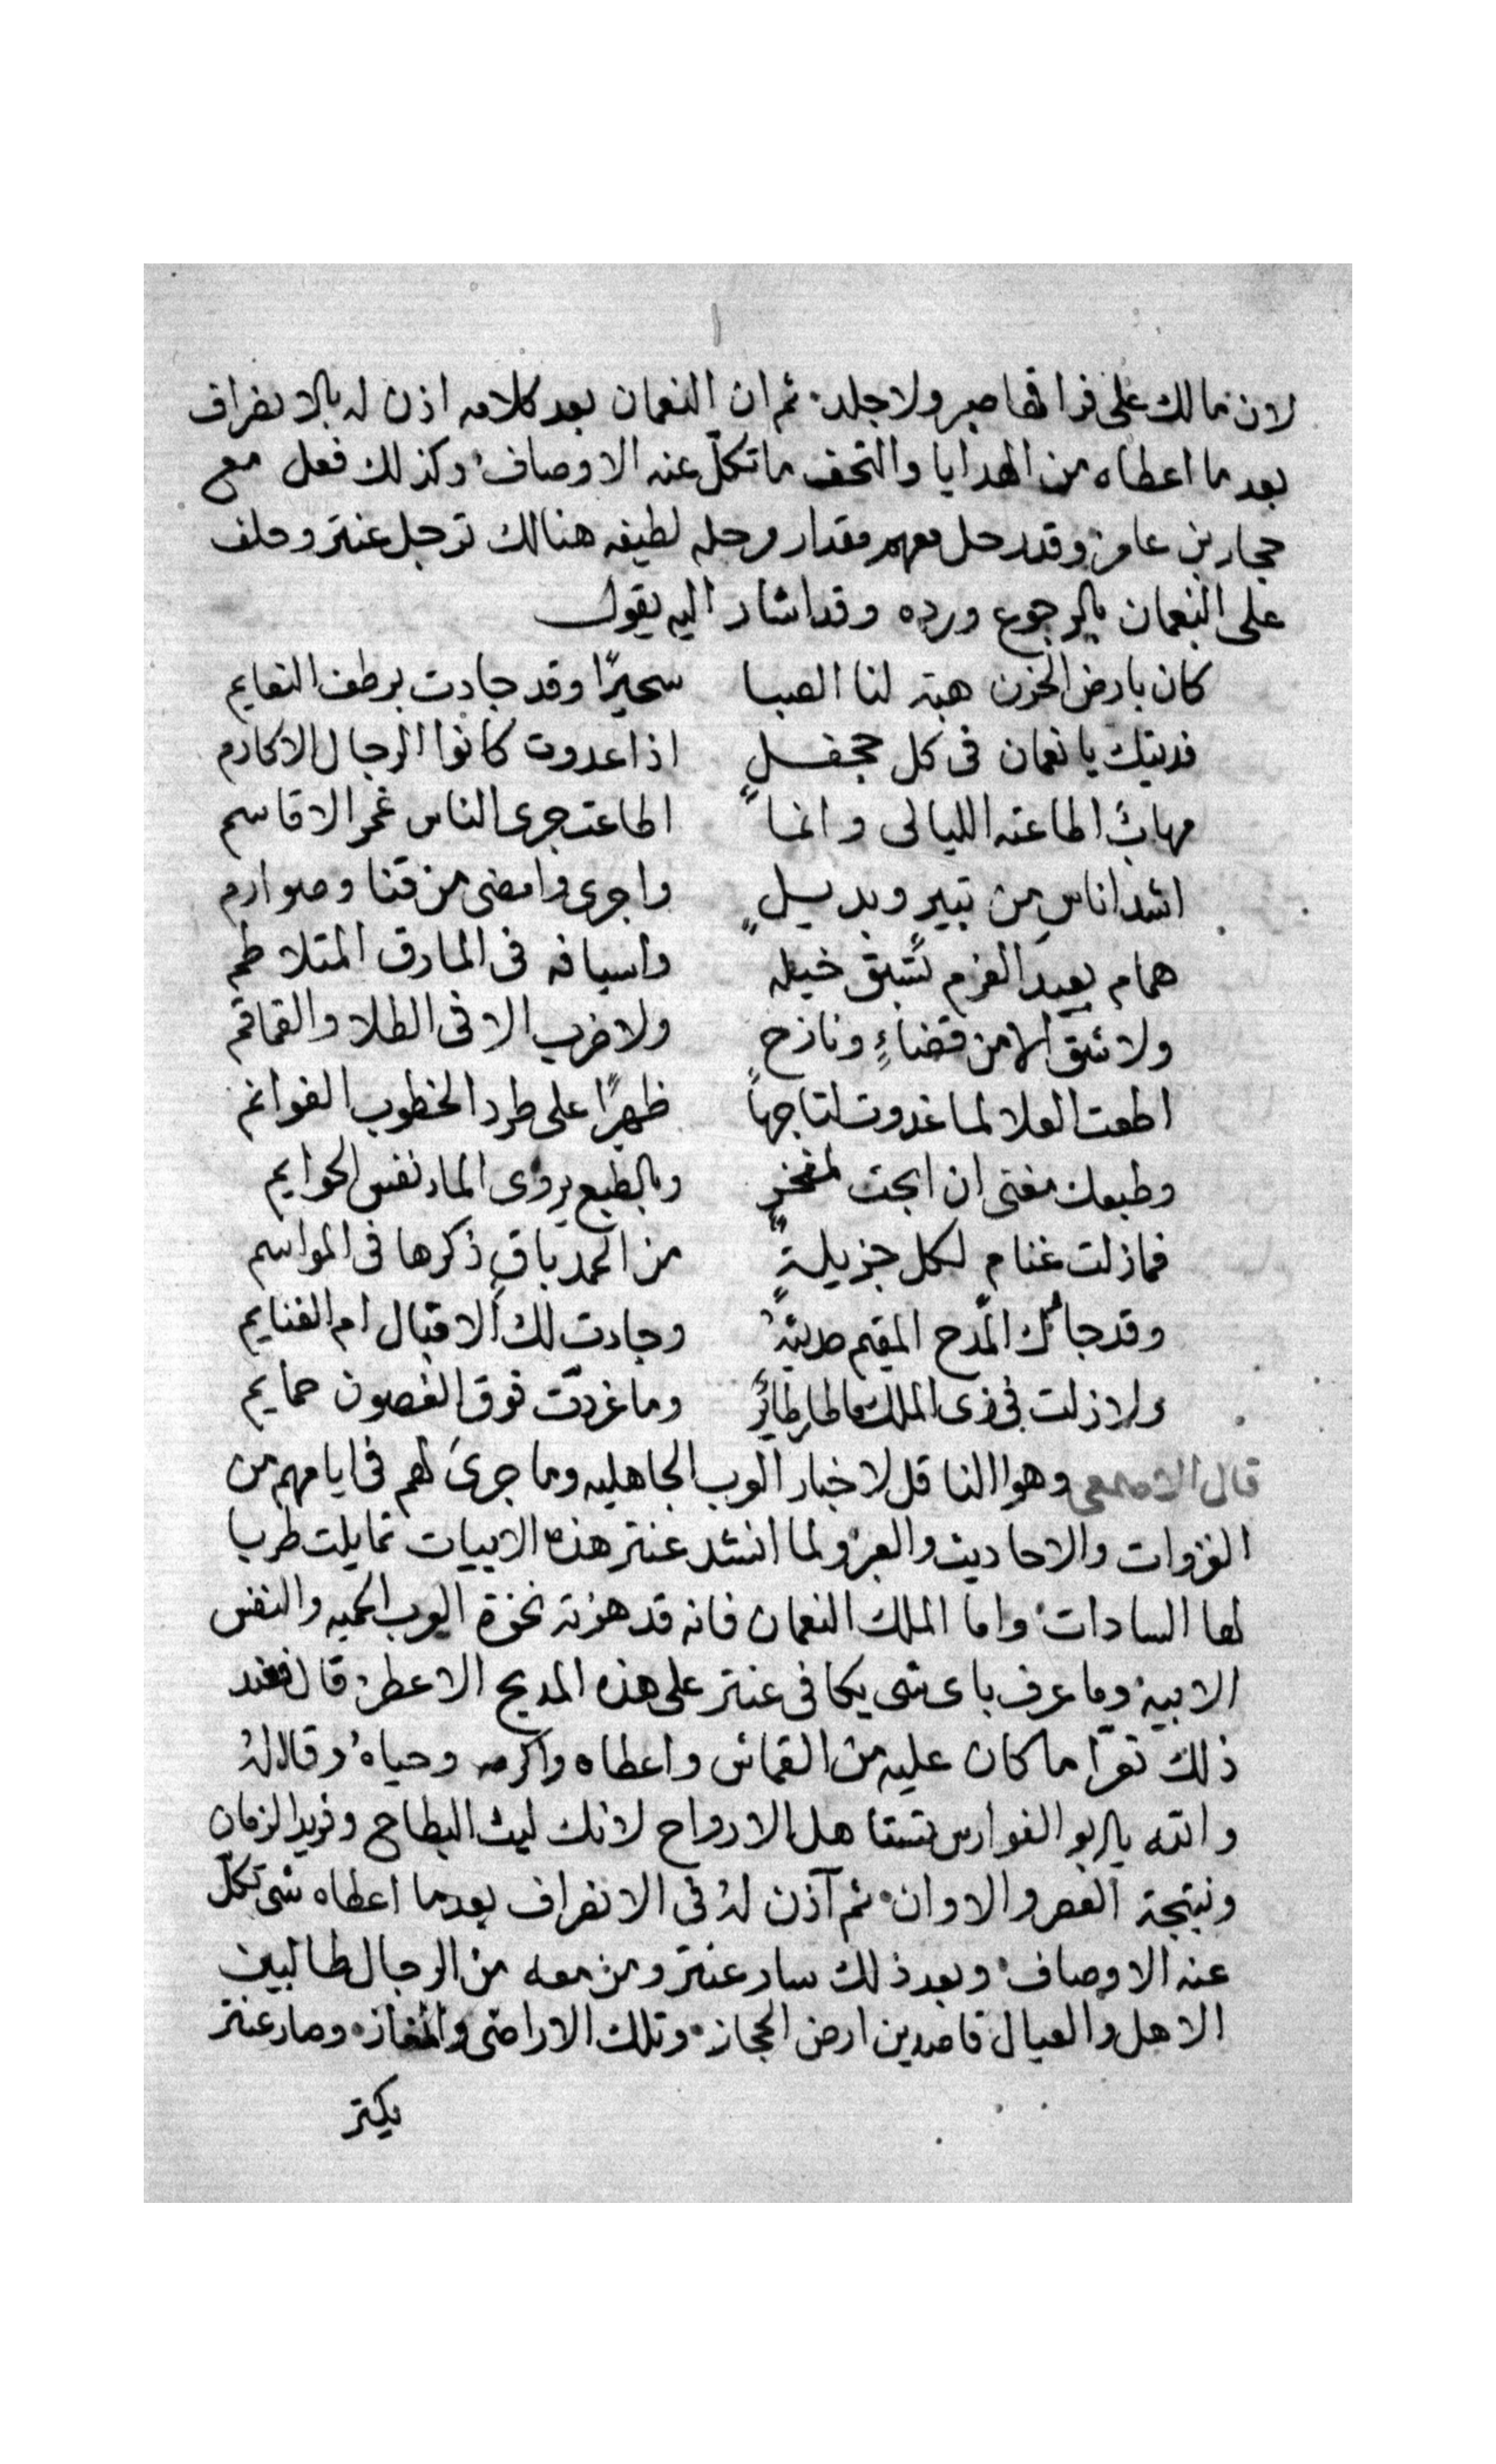 لان مالك على فراقها صبر ولا جلد. ثم ان النعمان بعد كلامه اذن له بالانصراف
بعد ما اعطاه من الهدايا والتحف ما تكلّ عنه الاوصاف. وكذلك فعل مع
حجار بن عامر. وقد رحل معهم مقدار مرحله لطيفه هنالك ترجل عنتر وحلف
على النعمان بالرجوع ورده وقد اشار اليه يقول
كان بارض الحزن هبة لنا الصبا سحيرًا وقد جادت برطف النعايم
فديتك يا نعمان فى كل جحفلٍ اذا عدوت كانوا الرجال الاكارم
مهابٌ اطاعته الليالى وانما اطاعت جرى الناس غمر الاقاسم
اشد اناس من ثبير ويدبلٍ واجرى وامضى من قنا وصوارم
همام بعيد العزم تستبق خيله واسيافه فى المارق المتلاطم
ولا الا من قضاءٍ ونازحٍ ولا ضرب الا فى الطلا والقماقم
اطعت العلا لما غدوت لتاجها ظهرًا على طرد الخطوب الغوانم
وطبعك مفتى ان ابحت لمفخرٍ وبالطبع يروى الماء نفس الحوايم
فمازلت غنام لكل جزيلةٍ من الحمد باقٍ ذكرها فى المواسم
وقد جائك المدح المقيم حديثهُ وجادت لك الاقبال ام الغنايم
ولا زلت فى ذى الملك ما طار طائرٌ وما غردت فوق الغصون حمايم
قال الاصمعى وهو الناقل لاخبار العرب الجاهليه وما جرىَ لهم فى ايامهم من
الغزوات والاحاديث والعبر ولما انشد عنتر هذه الابيات تمايلت طربا
لها السادات. واما الملك النعمان فانه قد هزته نخوة العرب الحميه والنفس
الابية. وما عرف باى شى يكافى عنتر على هذه المديح الاعطر. قال فعند
ذلك تعرّا ما كان عليه من القماش واعطاه واكرمه وحياهُ وقال لهُ
والله يا ابو الفوارس تستاهل الارواح لانك ليث البطاح وفريد الزمان
ونتيجة العصر والاوان. ثم آذن لهُ فى الانصراف بعد ما اعطاه شى تكلّ
عنه الاوصاف. وبعد ذلك سار عنتر ومن معه من الرجال طالبين
الاهل والعيال قاصدين ارض الحجاز. وتلك الاراضى والمفاز. وصار عنتر
يكثر